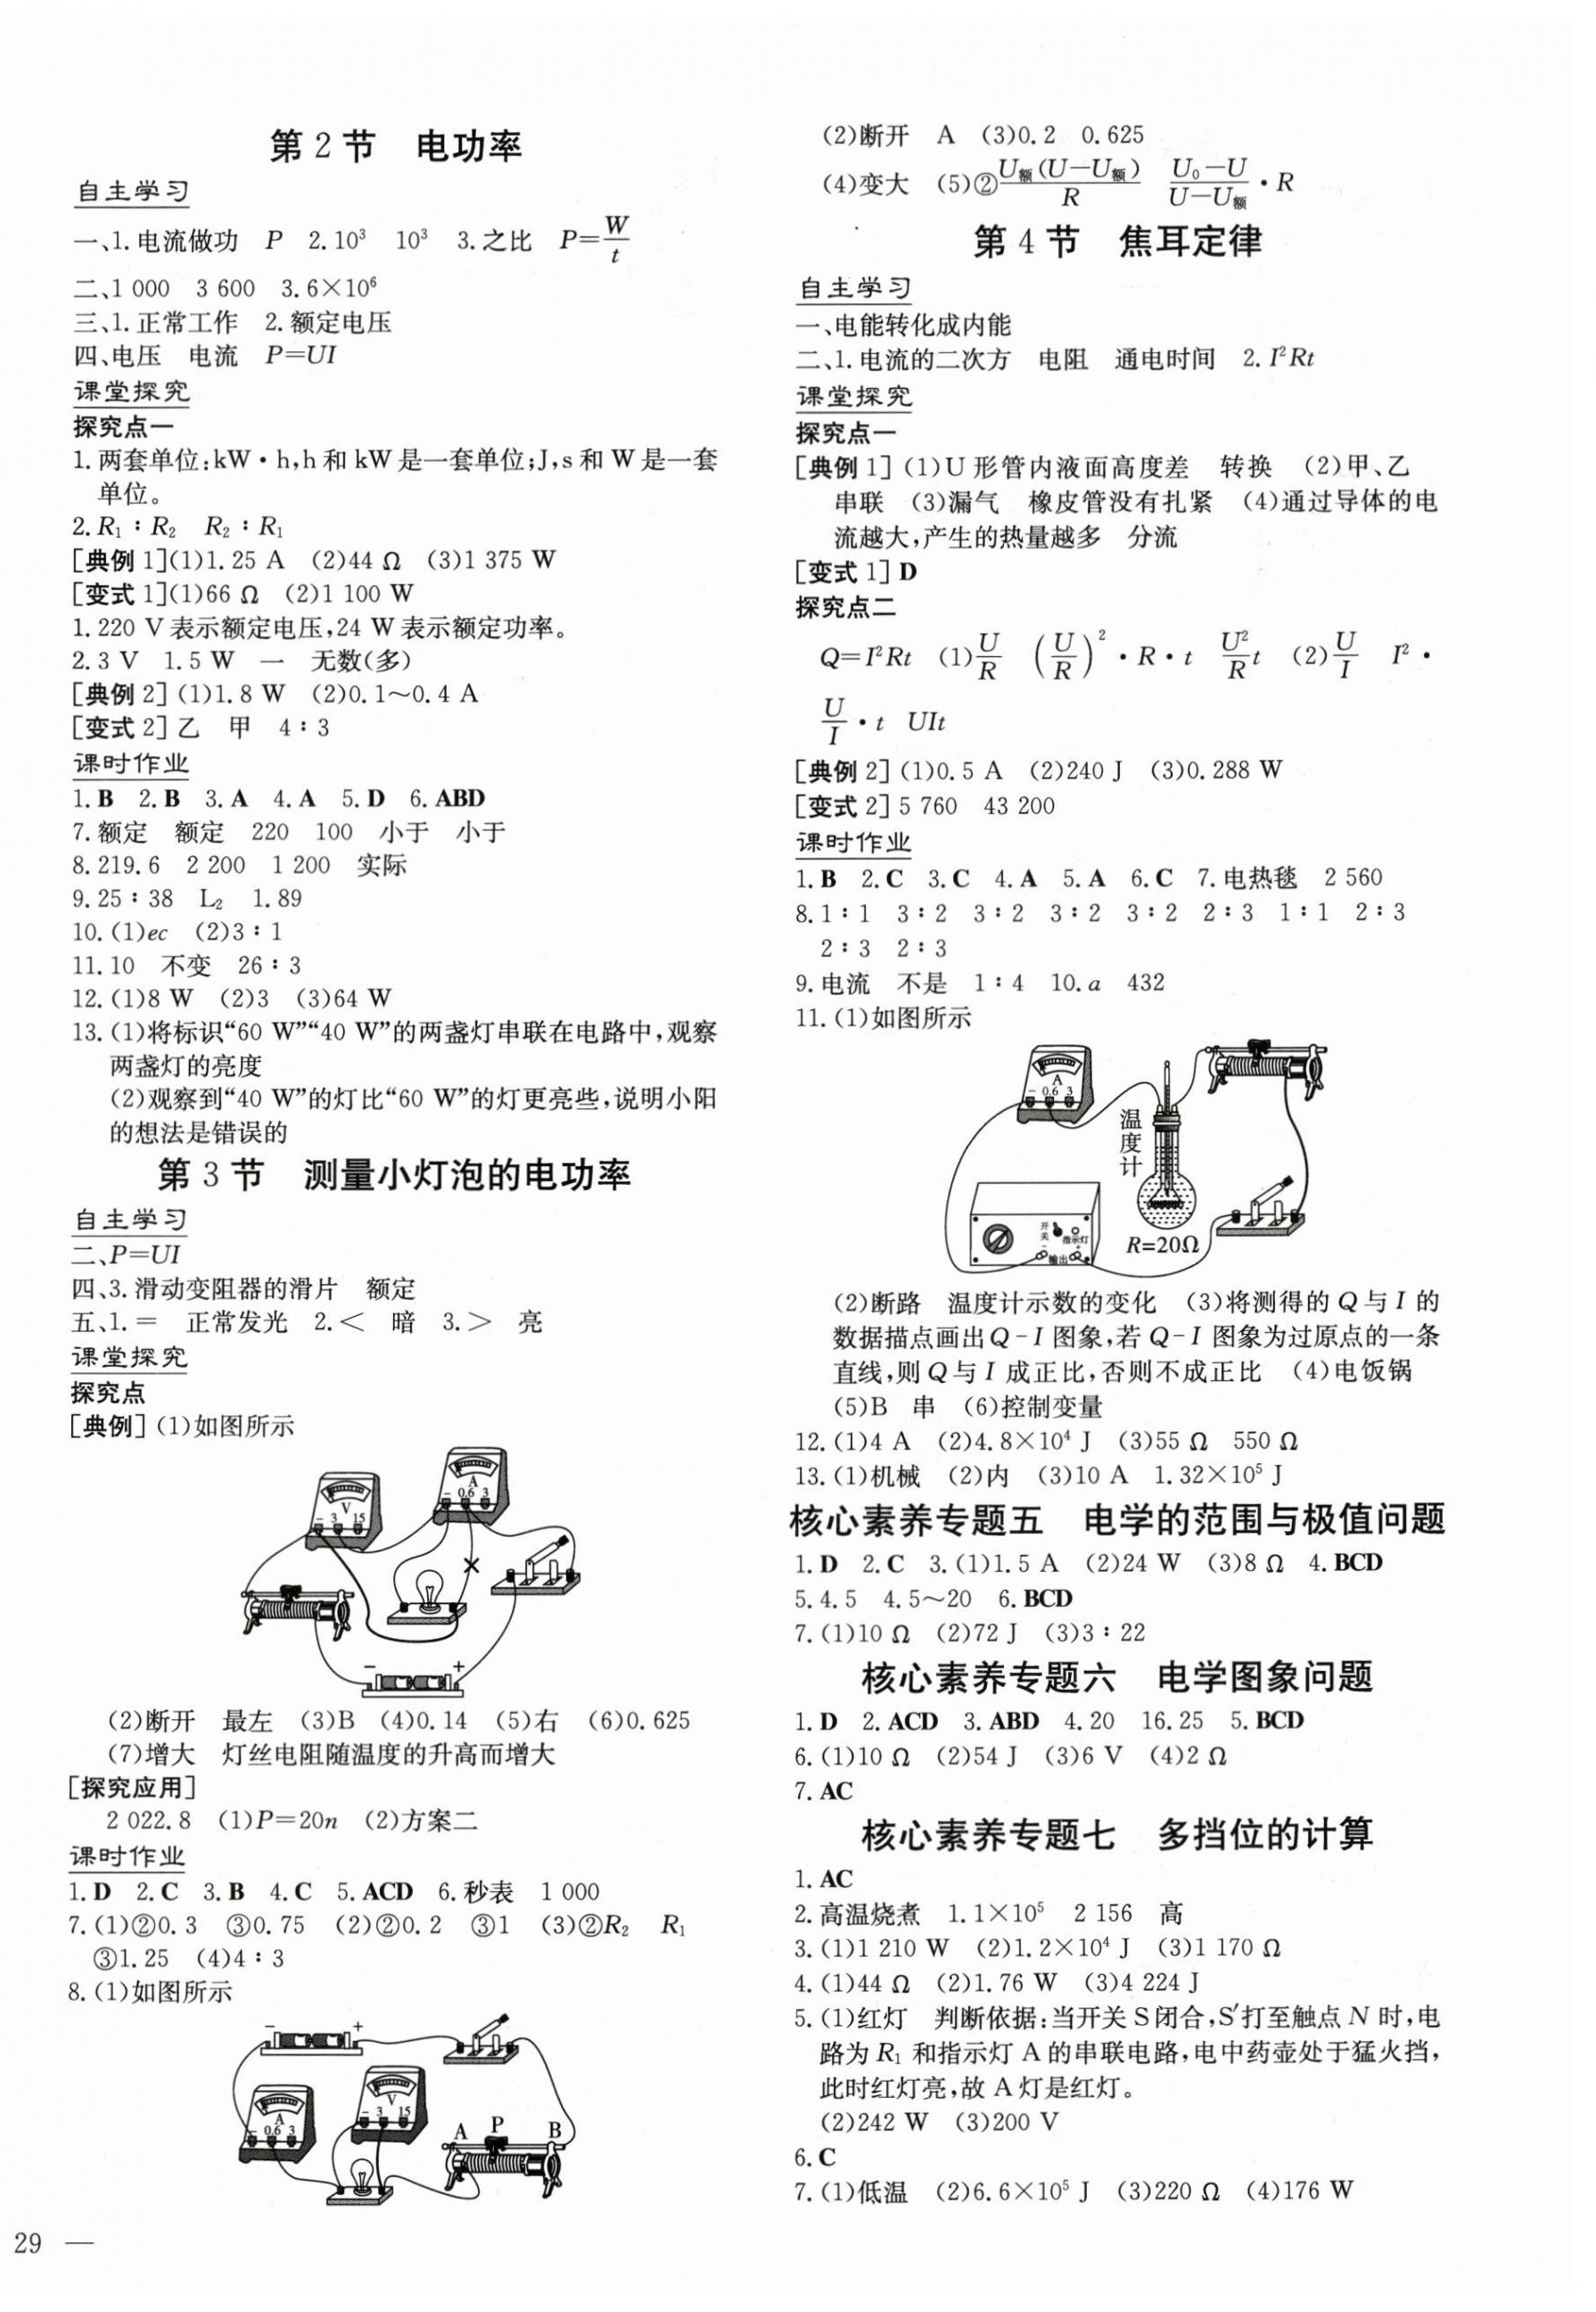 第2节 电功率
自主学习
一、1.电流做功 P 2.10³ 10³ 3.之比 P=W/t
二、1 000 3 600 3.6×10⁶
三、1.正常工作 2.额定电压
四、电压 电流 P=UI
课堂探究
探究点一
1.两套单位:kW·h,h和kW是一套单位;J,s和W是一套
单位。
2.R₁∶R₂ R₂∶R₁
[典例1](1)1.25 A (2)44 Ω (3)1 375 W
[变式1](1)66 Ω (2)1 100 W
1.220 V表示额定电压,24 W表示额定功率。
2.3 V 1.5 W 一 无数(多)
[典例2](1)1.8 W (2)0.1～0.4 A
[变式2]乙 甲 4∶3
课时作业
1.B 2.B 3.A 4.A 5.D 6.ABD
7.额定 额定 220 100 小于 小于
8.219.6 2 200 1 200 实际
9.25∶38 L₂ 1.89
10.(1)ec (2)3∶1
11.10 不变 26∶3
12.(1)8 W (2)3 (3)64 W
13.(1)将标识“60 W”“40 W”的两盏灯串联在电路中,观察
两盏灯的亮度
(2)观察到“40 W”的灯比“60 W”的灯更亮些,说明小阳
的想法是错误的
第3节 测量小灯泡的电功率
自主学习
二、P=UI
四、3.滑动变阻器的滑片 额定
五、1.= 正常发光 2.< 暗 3.> 亮
课堂探究
探究点
[典例](1)如图所示
A
- 0.6 3
V
- 3 15
- +
(2)断开 最左 (3)B (4)0.14 (5)右 (6)0.625
(7)增大 灯丝电阻随温度的升高而增大
[探究应用]
2 022.8 (1)P=20n (2)方案二
课时作业
1.D 2.C 3.B 4.C 5.ACD 6.秒表 1 000
7.(1)②0.3 ③0.75 (2)②0.2 ③1 (3)②R₂ R₁
③1.25 (4)4∶3
8.(1)如图所示
- +
V
- 3 15
A
- 0.6 3
A P B
29 —
(2)断开 A (3)0.2 0.625
(4)变大 (5)②U额(U-U额)/R (U₀-U)/(U-U额)·R
第4节 焦耳定律
自主学习
一、电能转化成内能
二、1.电流的二次方 电阻 通电时间 2.I²Rt
课堂探究
探究点一
[典例1](1)U形管内液面高度差 转换 (2)甲、乙
串联 (3)漏气 橡皮管没有扎紧 (4)通过导体的电
流越大,产生的热量越多 分流
[变式1]D
探究点二
Q=I²Rt (1)U/R (U/R)²·R·t U²/R t (2)U/I I²·
U/I·t UIt
[典例2](1)0.5 A (2)240 J (3)0.288 W
[变式2]5 760 43 200
课时作业
1.B 2.C 3.C 4.A 5.A 6.C 7.电热毯 2 560
8.1∶1 3∶2 3∶2 3∶2 3∶2 2∶3 1∶1 2∶3
2∶3 2∶3
9.电流 不是 1∶4 10.a 432
11.(1)如图所示
A
- 0.6 3
温度计
开关 指示灯
- 输出 +
R=20Ω
(2)断路 温度计示数的变化 (3)将测得的Q与I的
数据描点画出Q-I图象,若Q-I图象为过原点的一条
直线,则Q与I成正比,否则不成正比 (4)电饭锅
(5)B 串 (6)控制变量
12.(1)4 A (2)4.8×10⁴ J (3)55 Ω 550 Ω
13.(1)机械 (2)内 (3)10 A 1.32×10⁵ J
核心素养专题五 电学的范围与极值问题
1.D 2.C 3.(1)1.5 A (2)24 W (3)8 Ω 4.BCD
5.4.5 4.5～20 6.BCD
7.(1)10 Ω (2)72 J (3)3∶22
核心素养专题六 电学图象问题
1.D 2.ACD 3.ABD 4.20 16.25 5.BCD
6.(1)10 Ω (2)54 J (3)6 V (4)2 Ω
7.AC
核心素养专题七 多挡位的计算
1.AC
2.高温烧煮 1.1×10⁵ 2 156 高
3.(1)1 210 W (2)1.2×10⁴ J (3)1 170 Ω
4.(1)44 Ω (2)1.76 W (3)4 224 J
5.(1)红灯 判断依据:当开关S闭合,S′打至触点N时,电
路为R₁和指示灯A的串联电路,电中药壶处于猛火挡,
此时红灯亮,故A灯是红灯。
(2)242 W (3)200 V
6.C
7.(1)低温 (2)6.6×10⁵ J (3)220 Ω (4)176 W